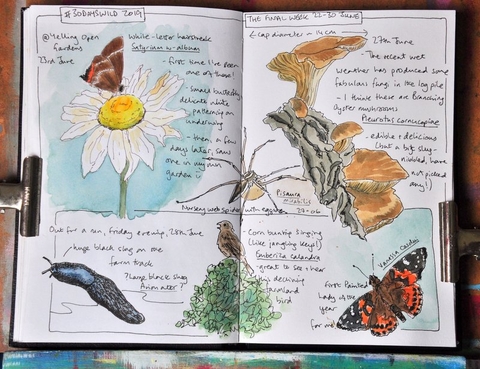 #30DAYSWILD 2019
@Yelling Open
Gardens
23rd June
White-letter hairstreak
Satyrium w-album
- first time I've seen
one of those!
- small butterfly
delicate white
patterning on
underwing
- then, a few
days later, saw
one in my own
garden
Nursery web spider with egg sac
Pisaura
mirabilis
27-06
THE FINAL WEEK 22-30 JUNE
cap diameter ~ 14cm
27th June
- The recent wet
weather has produced some
fabulous fungi in the log pile
- I think these are Branching
Oyster mushrooms
Pleurotus cornucopiae
- edible & delicious
(but a bit slug-
nibbled, have
not picked
any!)
Out for a run, Friday evening, 28th June
- huge black slug on one
farm track
?Large black slug
Arion ater?
- Corn bunting singing
(like jangling keys!)
Emberiza calandra
- great to see & hear
declining
farmland
bird
Vanessa cardui
First Painted
Lady of the
year
for me!